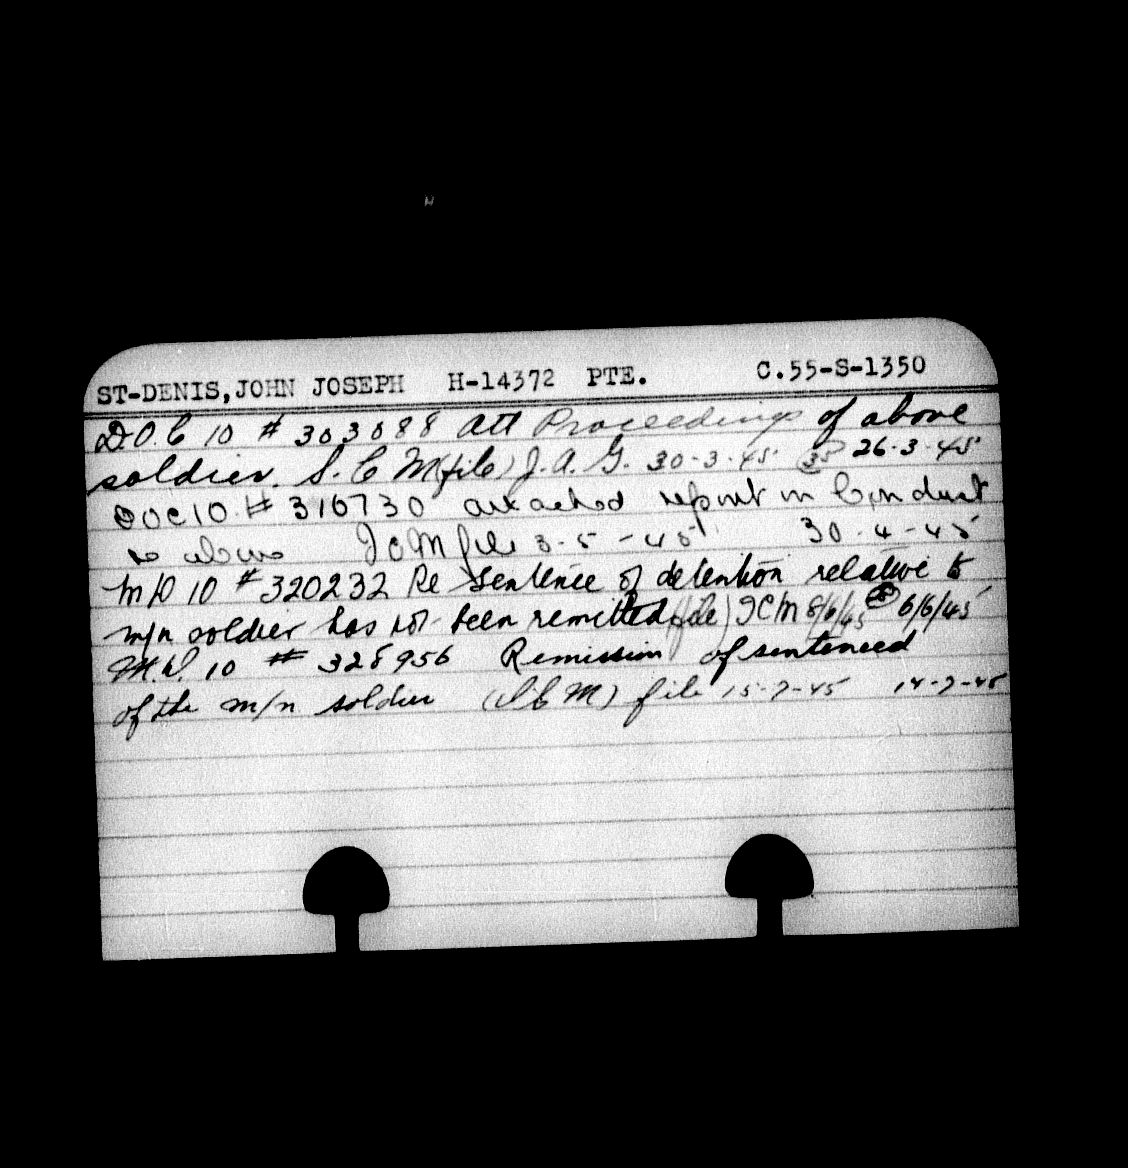 ST-DENIS,JOHN JOSEPH H-14372 PTE. C.55-S-1350
D.O.C 10 # 303088 att Proceedings of above
soldier. S.C.M (file) J.A.G. 30-3-45 35 26-3-45
DOC10 # 310730 attached report on Conduct
re above JCM file 3-5-45 30-4-45
M/D 10 # 320232 Re Sentence of detention relative to
m/n soldier has not been remitted (file) JCM 8/6/45 6/6/45
M.D. 10 # 328956 Remission of sentenced
of the m/n soldier (SCM) file 15-7-45 14-7-45